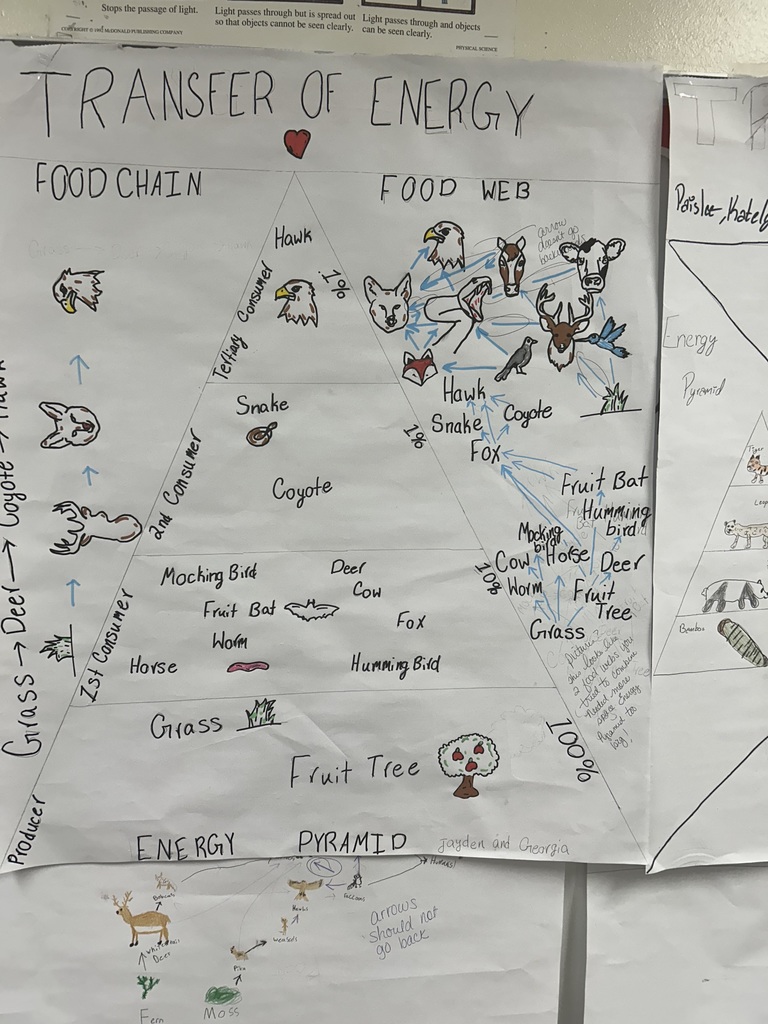 Stops the passage of light.
Light passes through but is spread out
so that objects cannot be seen clearly.
Light passes through and objects
can be seen clearly.
COPYRIGHT © 1992 McDONALD PUBLISHING COMPANY
PHYSICAL SCIENCE
TRANSFER OF ENERGY
FOOD CHAIN
FOOD WEB
Grass → Deer → Coyote → Hawk
Hawk
1%
Tertiary Consumer
Snake
1%
Coyote
2nd Consumer
Mocking Bird
Deer
Cow
Fruit Bat
Fox
Worm
Horse
Humming Bird
10%
1st Consumer
Grass
Fruit Tree
100%
Producer
ENERGY PYRAMID
Jayden and Georgia
arrow
doesn't go
back
Hawk
Snake
Coyote
Fox
Fruit Bat
Humming
bird
Mocking
bird
Cow
Horse
Deer
Worm
Fruit
Tree
Grass
Pictures?
this looks like
2 food webs you
tried to combine
needed more
space Energy
Pyramid too
big!
Paislee, Kately
Energy
Pyramid
Tiger
Bamboo
Humans!
Hawks
weasels
Fern
Moss
arrows
should not
go back